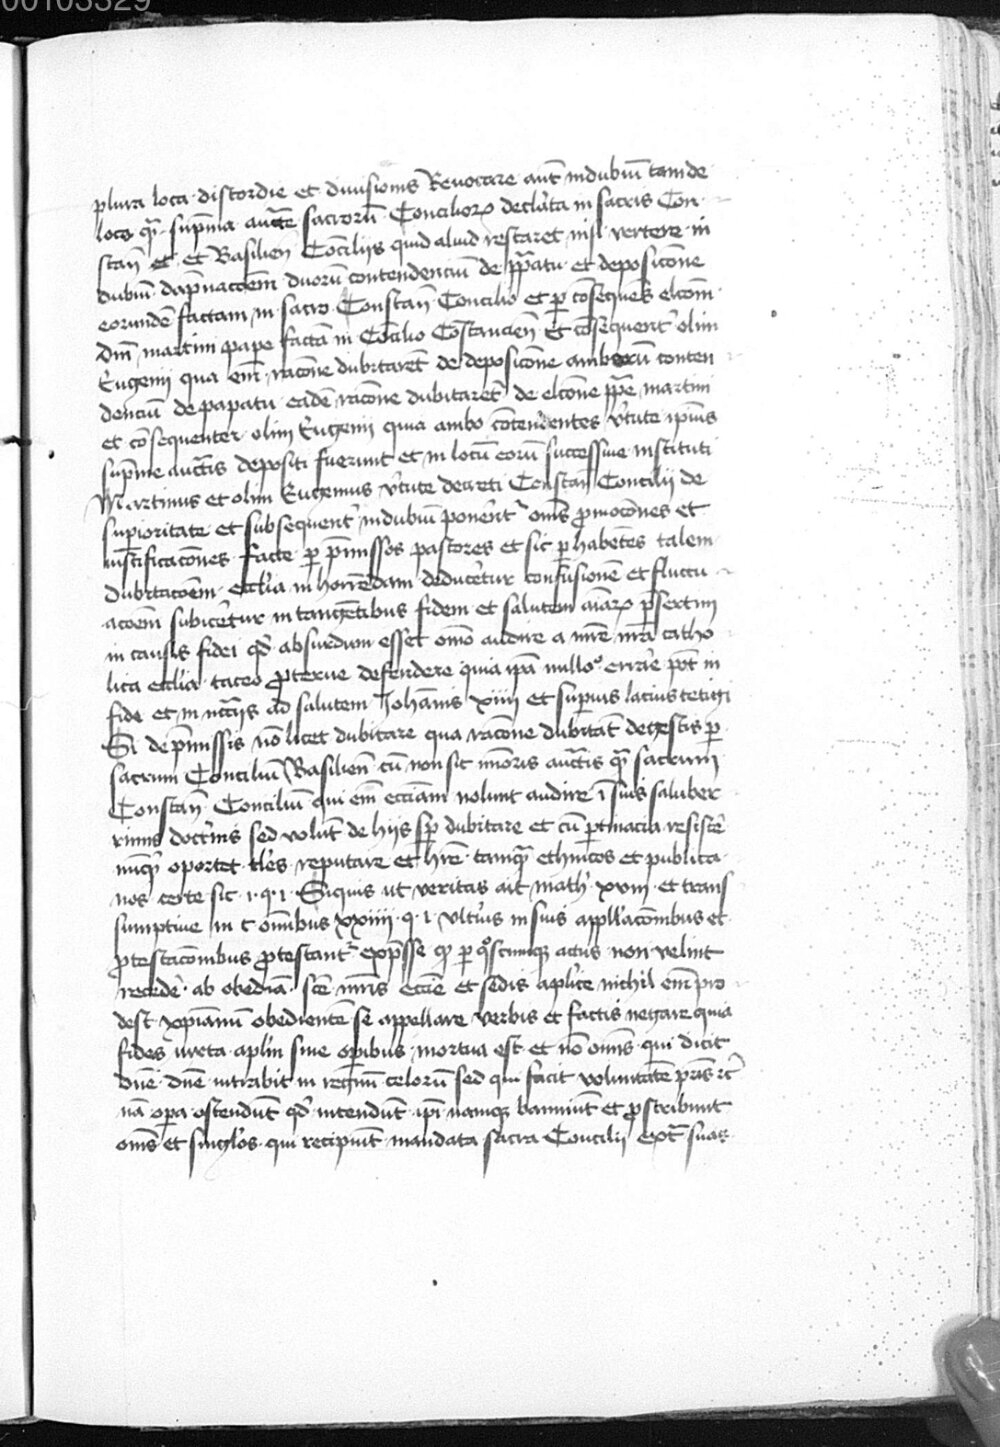 00103329
plura loca discordie et diuisionis Reuocare aut in dubiu tam de
loco q̃ sup̃ma aucte sacroru Concilioꝝ declata in sacris Con
stan et Basilien Cociliis quid aliud restaret nisi vertere in
dubiu dapnacoem duoru contendenciu de ppatu et deposicone
eorunde factam in sacro Constan Concilio et p coseques elcom
dni martini pape facta in Cocilio Constancien et cosequent olim
Eugenii qua em racone dubitaret de deposicone amboru conten
denciu de papatu eade racone dubitaret de elcone ppe martini
et cosequenter olim Eugenii quia ambo cotendentes vtute ipius
sup̃me auctis depositi fuerunt et in locu eoru successiue instituti
Martinus et olim Eugenius vtute decreti Constan Concilii de
supioritate et subsequent in dubiu ponent oms pmocones et
iustificacones facte p pmissos pastores et sic p habetes talem
dubitacoem ecclia in horrendam deducetur confusione et fluctu
acoem subicetur in tangetibus fidem et salutem aiaꝝ psertim
in causis fidei qd absurdum esset omo audire a mre nra catho
lica ecclia taceo pterue defendere quia ipa nullo errare pot in
fide et in nccriis ad salutem Johanis xiiii et supius lacius tetigi
Si de pmissis no licet dubitare qua racone dubitat de gestis p
sacrum Conciliu Basilien cu non sit minoris auctis q̃ sacrum
Constan Conciliu qui em ecciam nolunt audire i suis saluber
rimis doctnis sed volut de hiis sp dubitare et cu ptinacia resiste
nuq oportet tles reputare et hre tanq̃ ethnicos et publica
nos certe sic i q i Siquis ut veritas ait math xviii et trans
sumptiue in c omibus xxiiii q i vltius in suis appllacombus et
ptestacombus ptestant expsse qp p qoscumq actus non velint
recede ab obedia sce mris eccie et sedis aplice nichil em pro
dest xpianum obediente se appellare verbis et factis negare quia
fides iuxta aplm sine opibus mortua est et no omis qui dicit
dne dne intrabit in regnu celoru sed qui facit voluntate pris rc
na opa ostendut qd intendut ipi namq banniut et pscribunt
oms et singlos qui recipiut mandata sacra Concilii ext suas